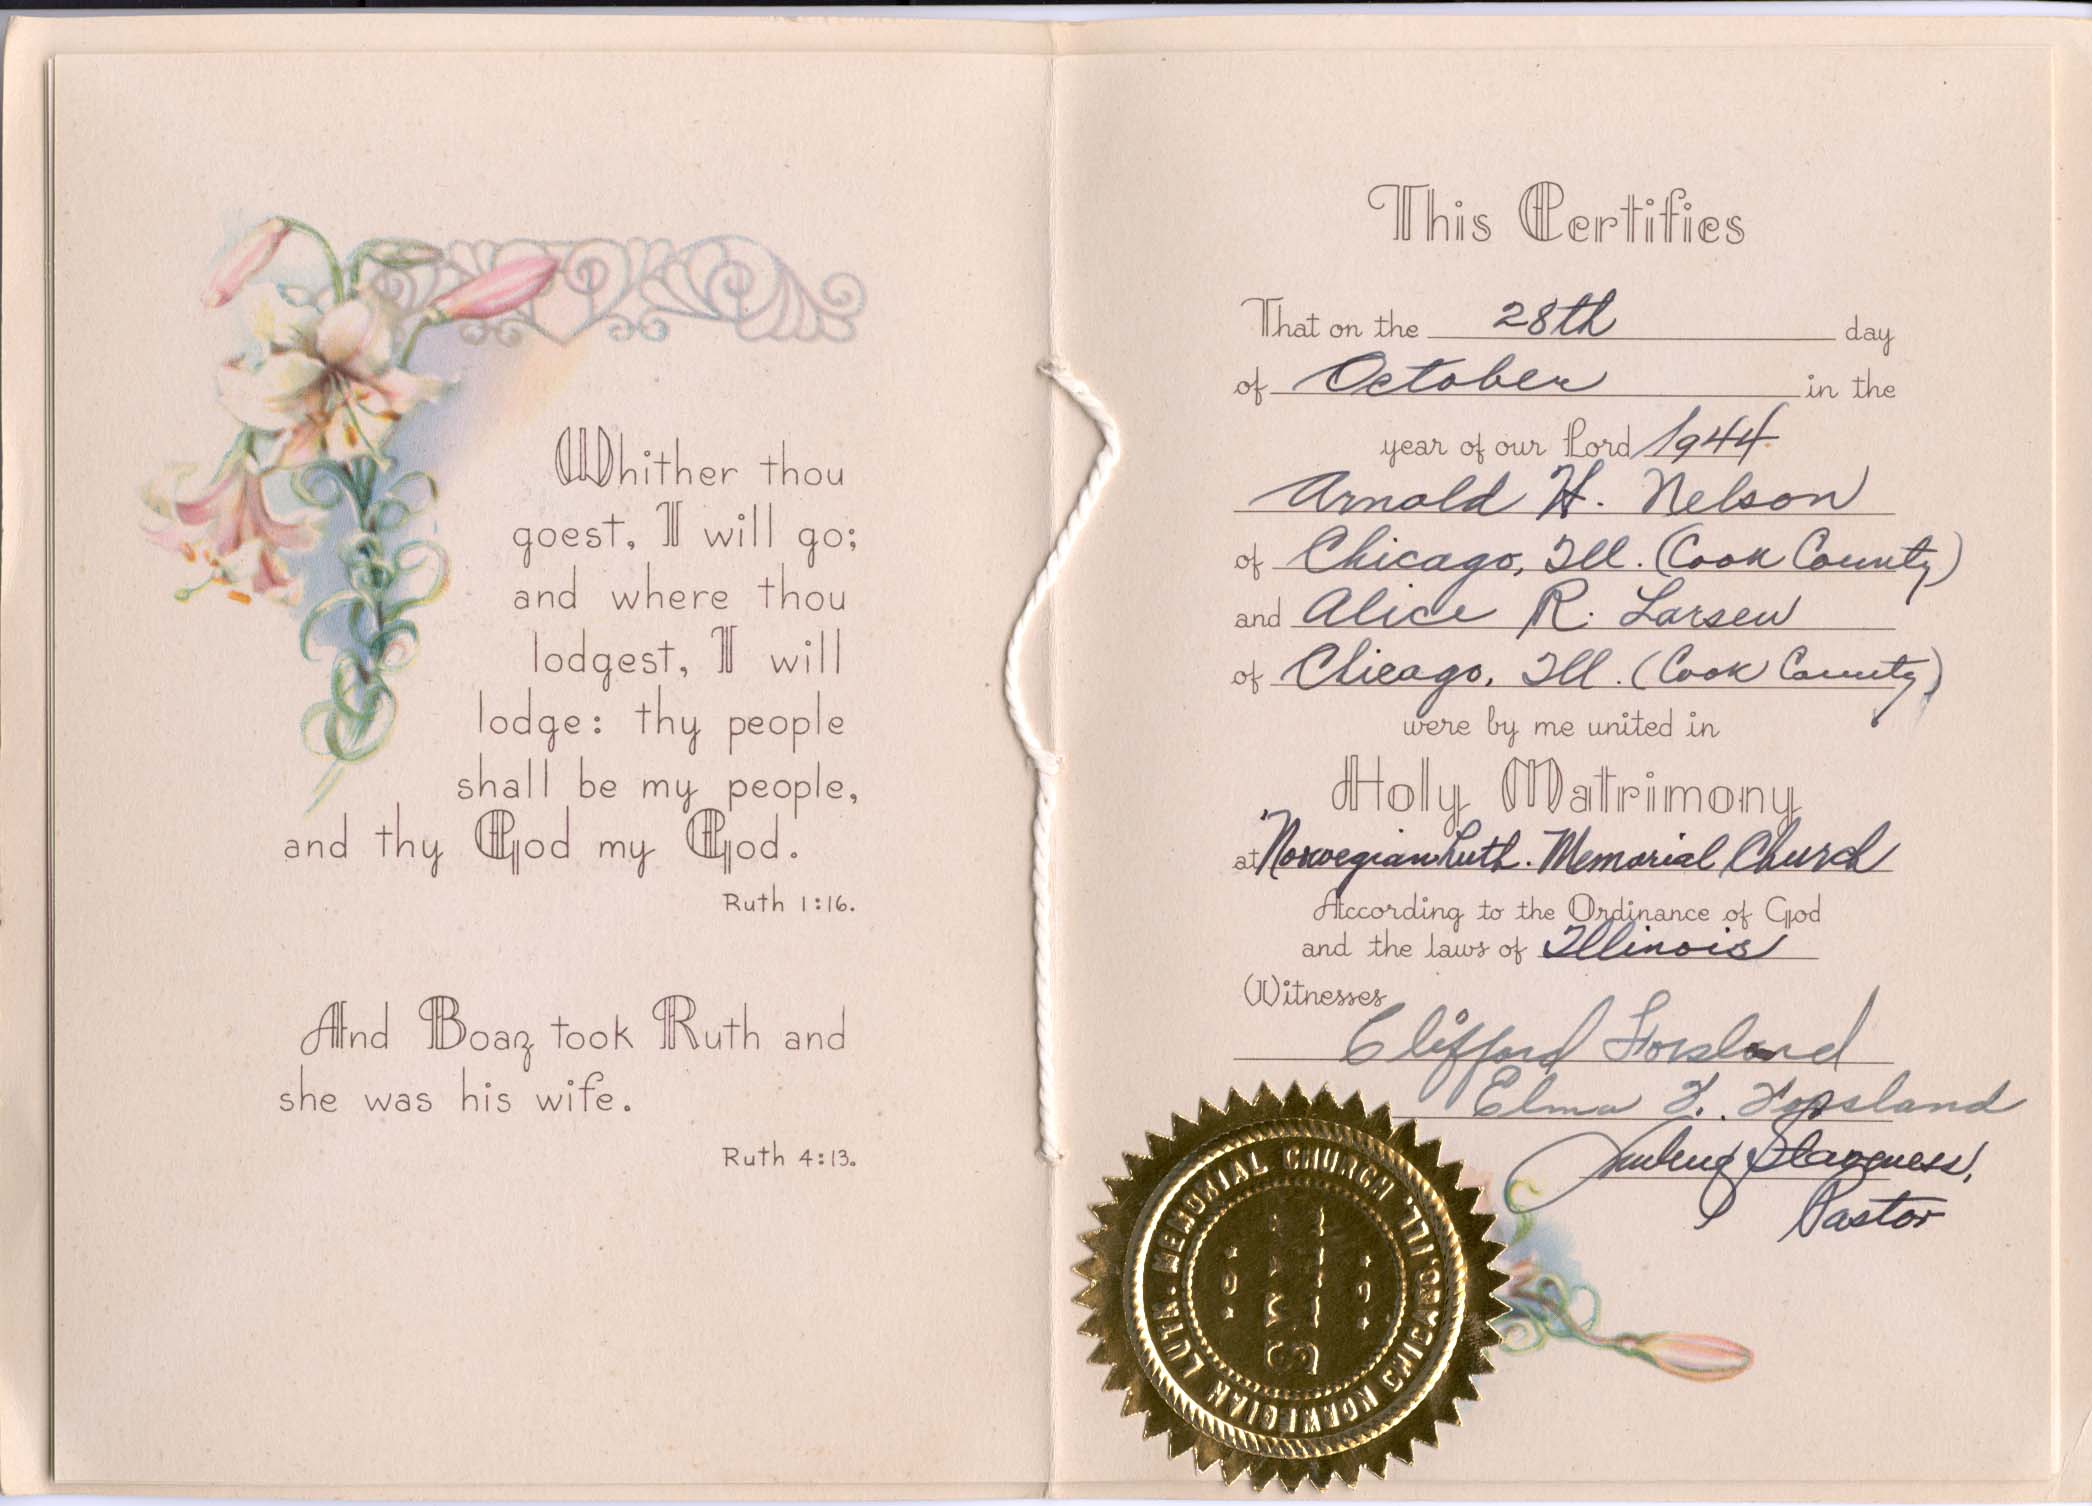 Whither thou
goest, I will go;
and where thou
lodgest, I will
lodge: thy people
shall be my people,
and thy God my God.
Ruth 1:16.
And Boaz took Ruth and
she was his wife.
Ruth 4:13.
This Certifies
That on the 28th day
of October in the
year of our Lord 1944
Arnold H. Nelson
of Chicago, Ill. (Cook County)
and Alice R. Larsen
of Chicago, Ill. (Cook County)
were by me united in
Holy Matrimony
at Norwegian Luth. Memorial Church
According to the Ordinance of God
and the laws of Illinois
Witnesses
Clifford Forsland
Elma F. Forsland
Pastor
NORWEGIAN LUTH. MEMORIAL CHURCH
CHICAGO, ILL.
SEAL